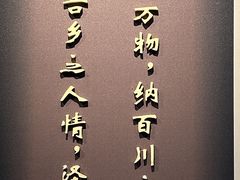 万物，纳百川，
吾乡之人情，泽